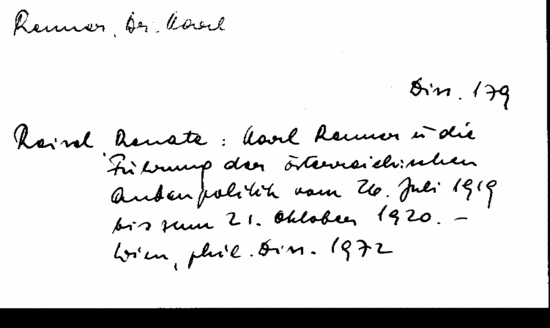 Renner, Dr. Karl
Diss. 179
Reisel Renate : Karl Renner u die
Führung der österreichischen
Außenpolitik vom 26. Juli 1919
bis zum 21. Oktober 1920. –
Wien, phil. Diss. 1972